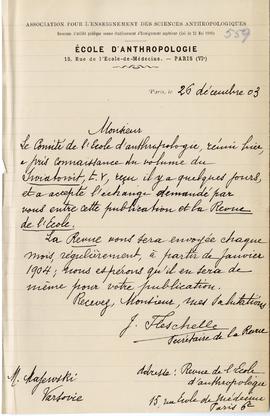 559
ASSOCIATION POUR L'ENSEIGNEMENT DES SCIENCES ANTHROPOLOGIQUES
Reconnue d'utilité publique comme établissement d'Enseignement supérieur (loi du 22 Mai 1889)
ÉCOLE D'ANTHROPOLOGIE
15, Rue de l'École-de-Médecine. — PARIS (VIe)
Paris, le 26 décembre 03
Monsieur
Le Comité de l'école d'anthropologie, réuni hier,
a pris connaissance du volume du
Swiatowit, t. V, reçu il y a quelques jours,
et a accepté l'échange demandé par
vous entre cette publication et la Revue
de l'École.
La Revue vous sera envoyée chaque
mois, régulièrement, à partir de janvier
1904; nous espérons qu'il en sera de
même pour votre publication.
Recevez, Monsieur, mes salutations
J.
Secrétaire de la Revue
M. Majewski
Varsovie
Adresse: Revue de l'École
d'anthropologie
15 rue École de Médecine
Paris 6e